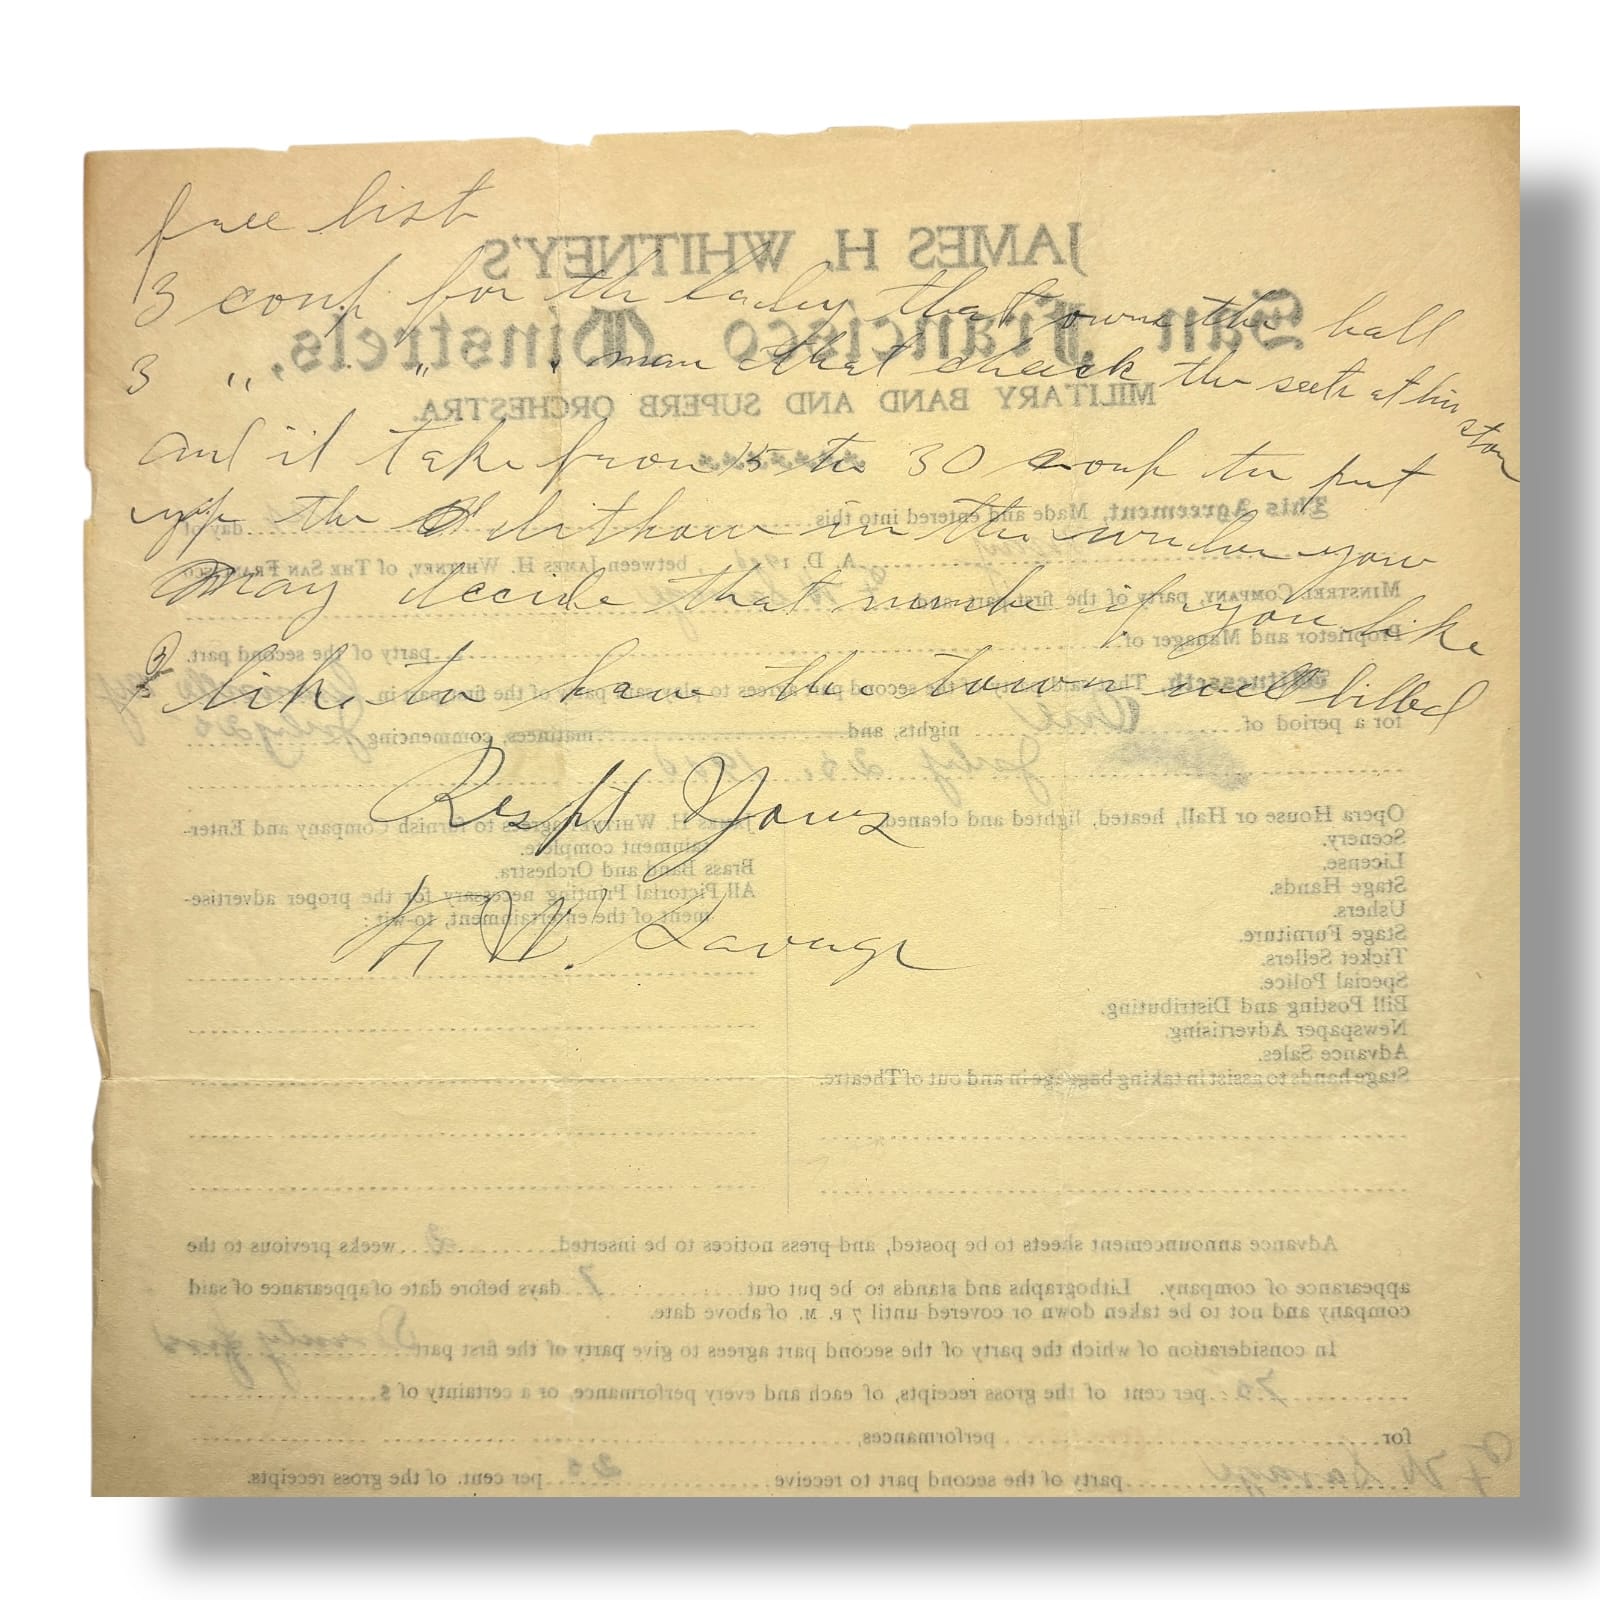 free list
3 coup for the lady that owns the hall
3 " " . man that check the seets at his stor
and it take from 15 to 30 coup to put
up the lithow in the window you
May decide that numbe if you like
I like to have the town well billed
Respt Yours
F W. Savage
JAMES H. WHITNEY'S
San Francisco Minstrels,
MILITARY BAND AND SUPERB ORCHESTRA.
This Agreement, Made and entered into this day of
A. D. 190 , between JAMES H. WHITNEY, of THE SAN FRANCISCO
MINSTREL COMPANY, party of the first part, and F W Savage
Proprietor and Manager of party of the second part.
Witnesseth, That said party of the second part agrees to play said party of the first part in
for a period of One nights, and matinees, commencing July 25
July 25. 190
Opera House or Hall, heated, lighted and cleaned.
Scenery.
License.
Stage Hands.
Ushers.
Stage Furniture.
Ticket Sellers.
Special Police.
Bill Posting and Distributing.
Newspaper Advertising.
Advance Sales.
Stage hands to assist in taking baggage in and out of Theatre.
James H. Whitney agrees to furnish Company and Enter-
tainment complete.
Brass Band and Orchestra.
All Pictorial Printing necessary for the proper advertise-
ment of the entertainment, to-wit:
Advance announcement sheets to be posted, and press notices to be inserted 2 weeks previous to the
appearance of company. Lithographs and stands to be put out 7 days before date of appearance of said
company and not to be taken down or covered until 7 P. M. of above date.
In consideration of which the party of the second part agrees to give party of the first part
75 per cent of the gross receipts, of each and every performance, or a certainty of $
for performances,
F W Savage party of the second part to receive 25 per cent. of the gross receipts.